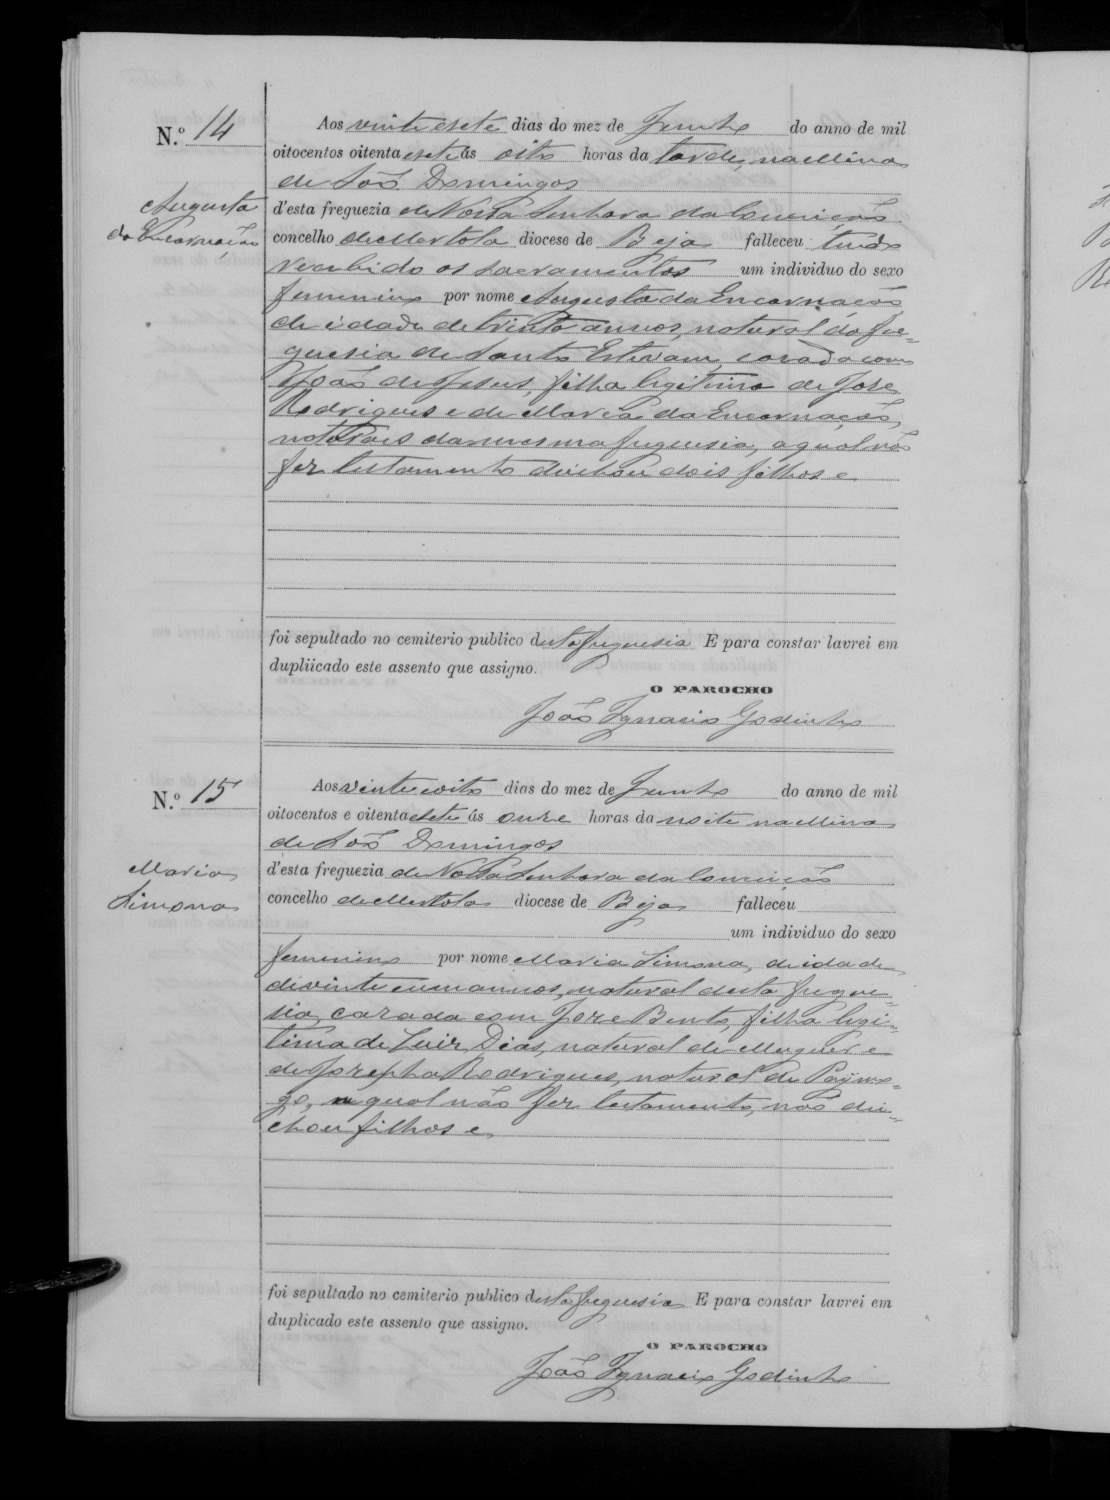 N.º 14
Augusta
da Encarnação
Aos vinte e sete dias do mez de Junho do anno de mil
oitocentos oitenta e sete ás oito horas da tarde, na Mina
de São Domingos
d'esta freguezia de Nossa Senhora da Conceição
concelho de Mertola diocese de Beja falleceu tendo
recebido os sacramentos um individuo do sexo
femenino por nome Augusta da Encarnação
de idade de trinta annos, natural da fre-
guesia de Santo Estevam, casada com
João de Jesus, filha legitima de José
Rodrigues e de Maria da Encarnação,
naturaes da mesma freguesia, a qual não
fez testamento deichou dois filhos e
foi sepultado no cemiterio publico desta freguesia E para constar lavrei em
dupliicado este assento que assigno.
O PAROCHO
João Ignacio Godinho
N.º 15
Maria
Simona
Aos vinte e oito dias do mez de Junho do anno de mil
oitocentos e oitenta e sete ás onze horas da noite na Mina
de São Domingos
d'esta freguezia de Nossa Senhora da Conceição
concelho de Mertola diocese de Beja falleceu
um individuo do sexo
femenino por nome Maria Simona, de idade
de vinte e um annos, natural desta fregue-
sia, cazada com Joze Bento, filha legi-
tima de Luiz Dias, natural de e
de Jozepha Rodrigues, natural de Paymo-
go, a qual não fez testamento, não dei-
chou filhos e
foi sepultado no cemiterio publico desta freguesia E para constar lavrei em
duplicado este assento que assigno.
O PAROCHO
João Ignacio Godinho